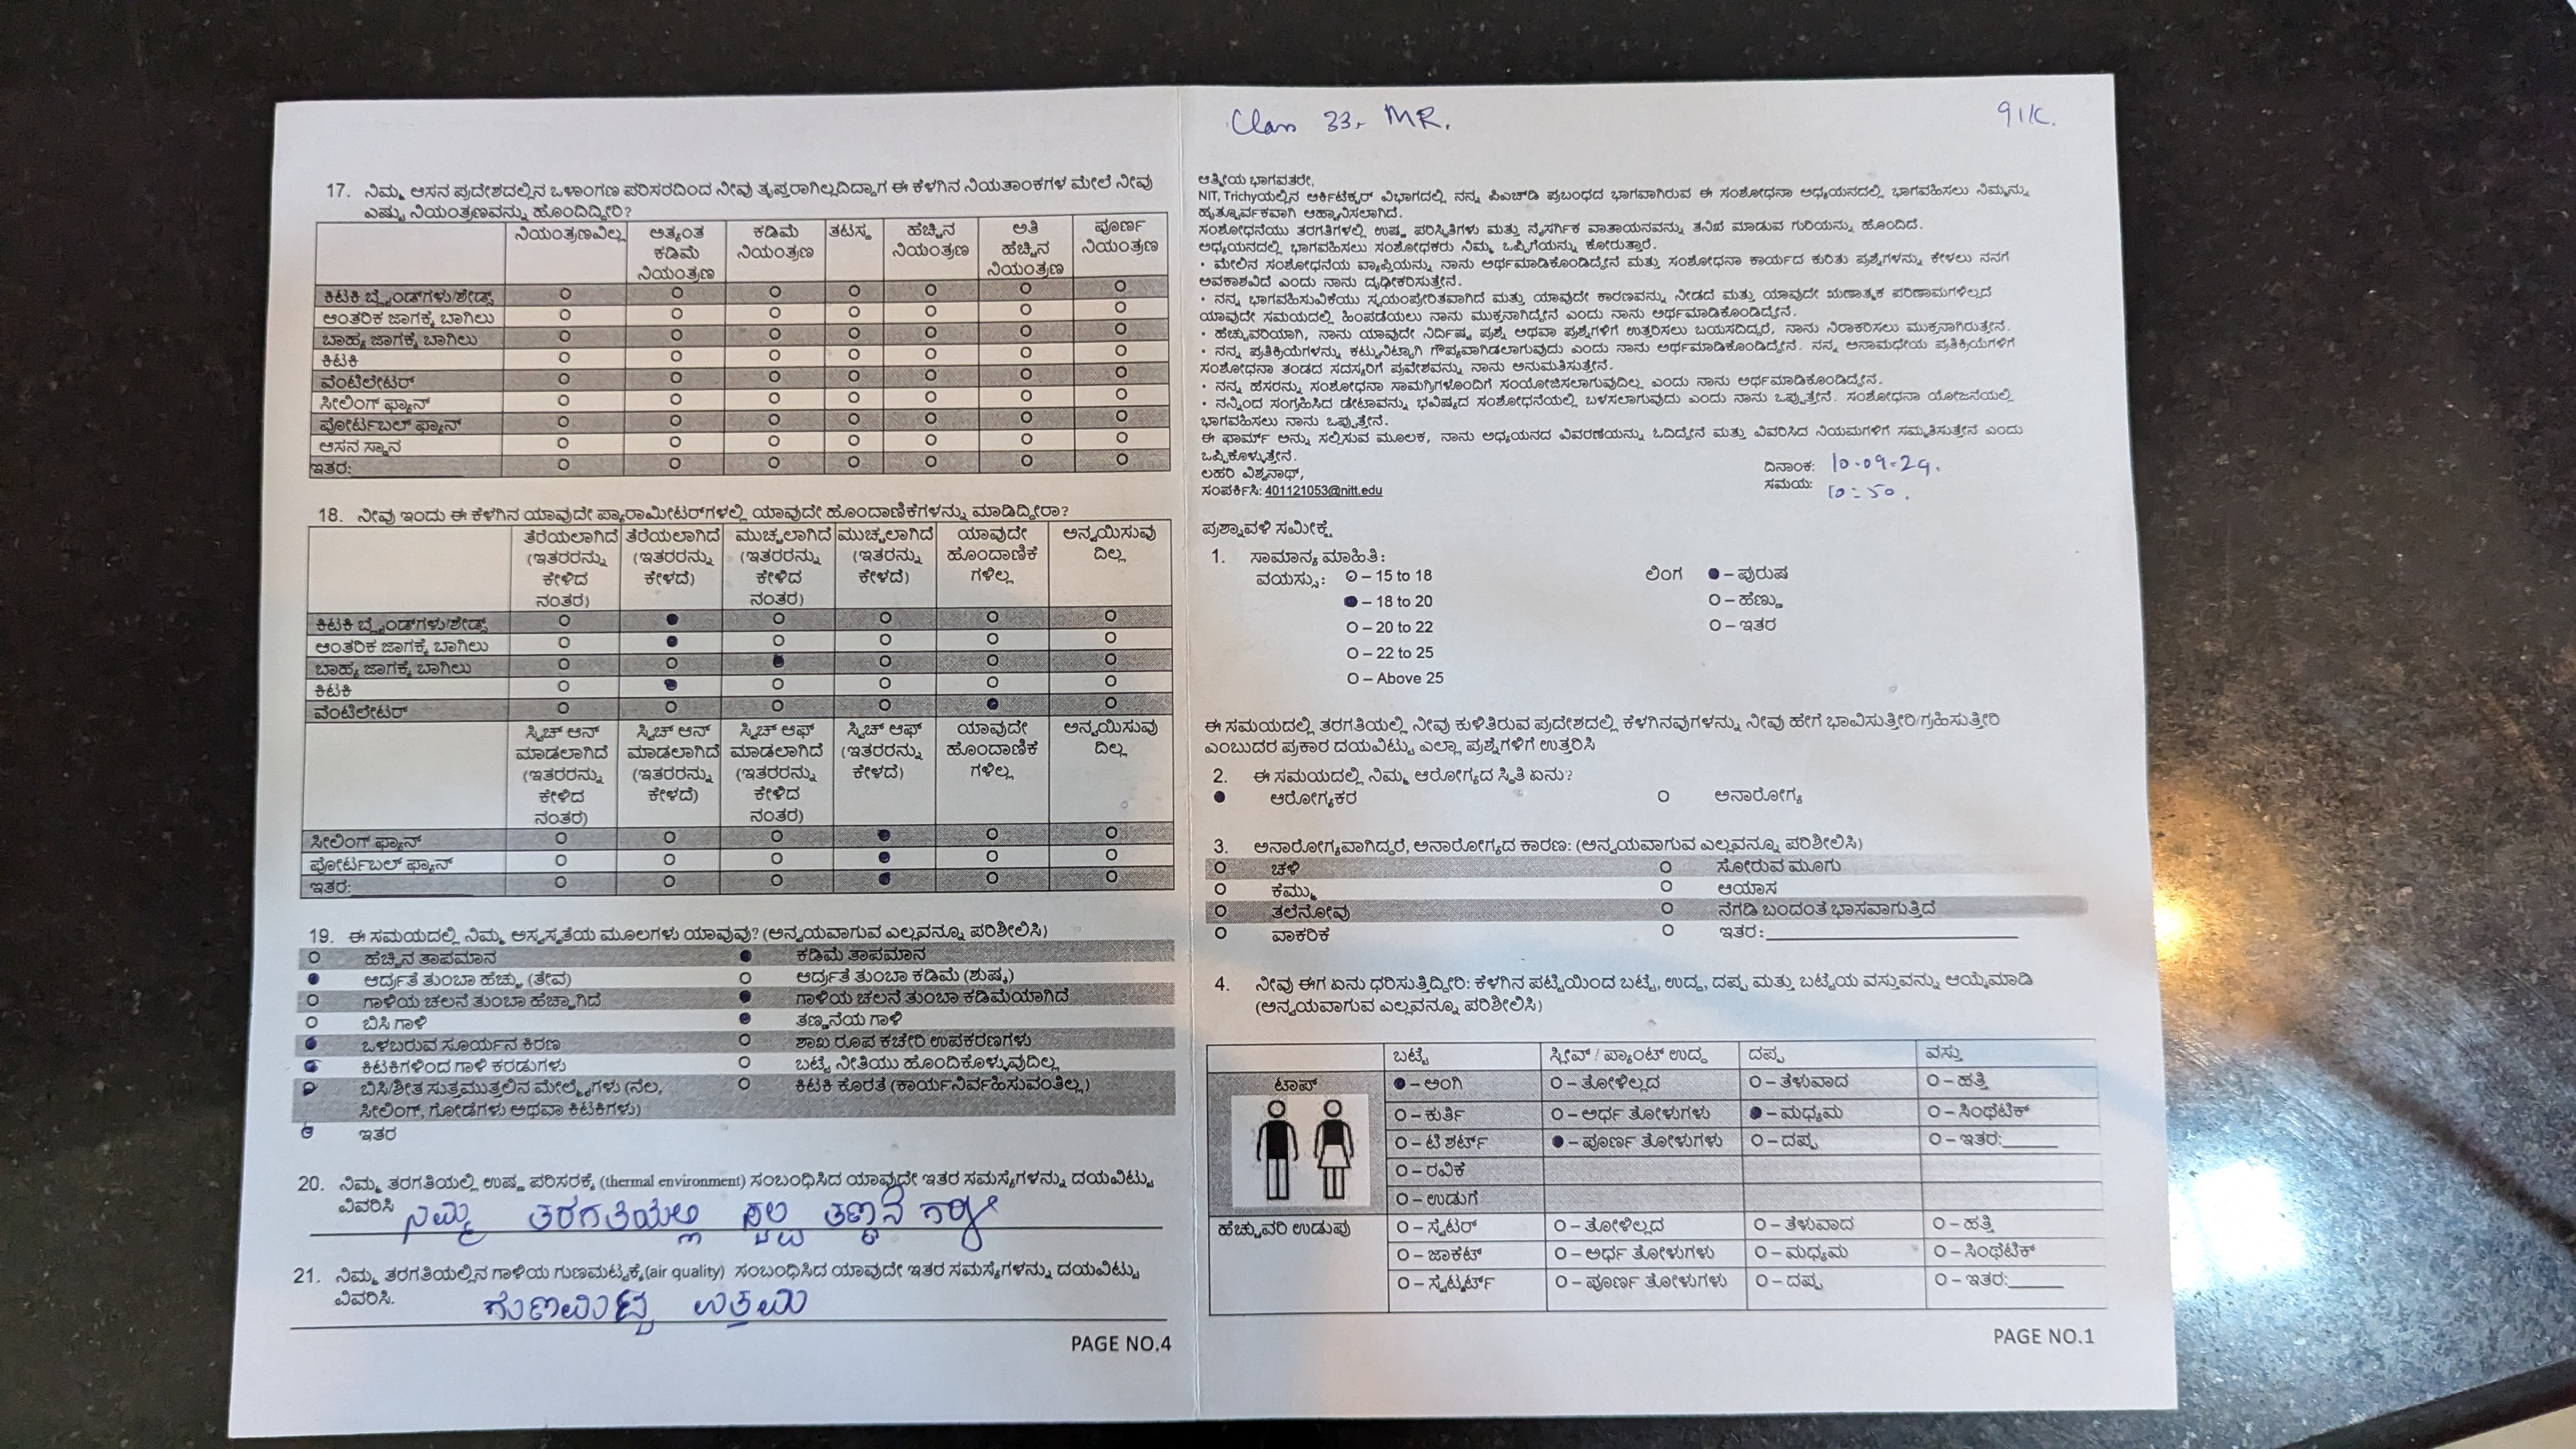 17. ನಿಮ್ಮ ಆಸನ ಪ್ರದೇಶದಲ್ಲಿನ ಒಳಾಂಗಣ ಪರಿಸರದಿಂದ ನೀವು ತೃಪ್ತರಾಗಿಲ್ಲದಿದ್ದಾಗ ಈ ಕೆಳಗಿನ ನಿಯತಾಂಕಗಳ ಮೇಲೆ ನೀವು
ಎಷ್ಟು ನಿಯಂತ್ರಣವನ್ನು ಹೊಂದಿದ್ದೀರಿ?
ನಿಯಂತ್ರಣವಿಲ್ಲ ಅತ್ಯಂತ ಕಡಿಮೆ ನಿಯಂತ್ರಣ ಕಡಿಮೆ ನಿಯಂತ್ರಣ ತಟಸ್ಥ ಹೆಚ್ಚಿನ ನಿಯಂತ್ರಣ ಅತಿ ಹೆಚ್ಚಿನ ನಿಯಂತ್ರಣ ಪೂರ್ಣ ನಿಯಂತ್ರಣ
ಕಿಟಕಿ ಬ್ಲೈಂಡ್‌ಗಳು/ಶೇಡ್ಸ್
ಆಂತರಿಕ ಜಾಗಕ್ಕೆ ಬಾಗಿಲು
ಬಾಹ್ಯ ಜಾಗಕ್ಕೆ ಬಾಗಿಲು
ಕಿಟಕಿ
ವೆಂಟಿಲೇಟರ್
ಸೀಲಿಂಗ್ ಫ್ಯಾನ್
ಪೋರ್ಟಬಲ್ ಫ್ಯಾನ್
ಆಸನ ಸ್ಥಾನ
ಇತರ:
18. ನೀವು ಇಂದು ಈ ಕೆಳಗಿನ ಯಾವುದೇ ಪ್ಯಾರಾಮೀಟರ್‌ಗಳಲ್ಲಿ ಯಾವುದೇ ಹೊಂದಾಣಿಕೆಗಳನ್ನು ಮಾಡಿದ್ದೀರಾ?
ತೆರೆಯಲಾಗಿದೆ (ಇತರರನ್ನು ಕೇಳಿದ ನಂತರ) ತೆರೆಯಲಾಗಿದೆ (ಇತರರನ್ನು ಕೇಳದೆ) ಮುಚ್ಚಲಾಗಿದೆ (ಇತರರನ್ನು ಕೇಳಿದ ನಂತರ) ಮುಚ್ಚಲಾಗಿದೆ (ಇತರರನ್ನು ಕೇಳದೆ) ಯಾವುದೇ ಹೊಂದಾಣಿಕೆ ಗಳಿಲ್ಲ ಅನ್ವಯಿಸುವು ದಿಲ್ಲ
ಕಿಟಕಿ ಬ್ಲೈಂಡ್‌ಗಳು/ಶೇಡ್ಸ್
ಆಂತರಿಕ ಜಾಗಕ್ಕೆ ಬಾಗಿಲು
ಬಾಹ್ಯ ಜಾಗಕ್ಕೆ ಬಾಗಿಲು
ಕಿಟಕಿ
ವೆಂಟಿಲೇಟರ್
ಸ್ವಿಚ್ ಆನ್ ಮಾಡಲಾಗಿದೆ (ಇತರರನ್ನು ಕೇಳಿದ ನಂತರ) ಸ್ವಿಚ್ ಆನ್ ಮಾಡಲಾಗಿದೆ (ಇತರರನ್ನು ಕೇಳದೆ) ಸ್ವಿಚ್ ಆಫ್ ಮಾಡಲಾಗಿದೆ (ಇತರರನ್ನು ಕೇಳಿದ ನಂತರ) ಸ್ವಿಚ್ ಆಫ್ (ಇತರರನ್ನು ಕೇಳದೆ) ಯಾವುದೇ ಹೊಂದಾಣಿಕೆ ಗಳಿಲ್ಲ ಅನ್ವಯಿಸುವು ದಿಲ್ಲ
ಸೀಲಿಂಗ್ ಫ್ಯಾನ್
ಪೋರ್ಟಬಲ್ ಫ್ಯಾನ್
ಇತರ:
19. ಈ ಸಮಯದಲ್ಲಿ ನಿಮ್ಮ ಅಸ್ವಸ್ಥತೆಯ ಮೂಲಗಳು ಯಾವುವು? (ಅನ್ವಯವಾಗುವ ಎಲ್ಲವನ್ನೂ ಪರಿಶೀಲಿಸಿ)
ಹೆಚ್ಚಿನ ತಾಪಮಾನ ಕಡಿಮೆ ತಾಪಮಾನ
ಆರ್ದ್ರತೆ ತುಂಬಾ ಹೆಚ್ಚು (ತೇವ) ಆರ್ದ್ರತೆ ತುಂಬಾ ಕಡಿಮೆ (ಶುಷ್ಕ)
ಗಾಳಿಯ ಚಲನೆ ತುಂಬಾ ಹೆಚ್ಚಾಗಿದೆ ಗಾಳಿಯ ಚಲನೆ ತುಂಬಾ ಕಡಿಮೆಯಾಗಿದೆ
ಬಿಸಿ ಗಾಳಿ ತಣ್ಣನೆಯ ಗಾಳಿ
ಒಳಬರುವ ಸೂರ್ಯನ ಕಿರಣ ಶಾಖ ರೂಪ ಕಚೇರಿ ಉಪಕರಣಗಳು
ಕಿಟಕಿಗಳಿಂದ ಗಾಳಿ ಕರಡುಗಳು ಬಟ್ಟೆ ನೀತಿಯು ಹೊಂದಿಕೊಳ್ಳುವುದಿಲ್ಲ
ಬಿಸಿ/ಶೀತ ಸುತ್ತಮುತ್ತಲಿನ ಮೇಲ್ಮೈಗಳು (ನೆಲ, ಕಿಟಕಿ ಕೊರತೆ (ಕಾರ್ಯನಿರ್ವಹಿಸುವಂತಿಲ್ಲ)
ಸೀಲಿಂಗ್, ಗೋಡೆಗಳು ಅಥವಾ ಕಿಟಕಿಗಳು)
ಇತರ
20. ನಿಮ್ಮ ತರಗತಿಯಲ್ಲಿ ಉಷ್ಣ ಪರಿಸರಕ್ಕೆ (thermal environment) ಸಂಬಂಧಿಸಿದ ಯಾವುದೇ ಇತರ ಸಮಸ್ಯೆಗಳನ್ನು ದಯವಿಟ್ಟು
ವಿವರಿಸಿ ನಮ್ಮ ತರಗತಿಯಲ್ಲಿ ಸ್ವಲ್ಪ ತಣ್ಣನೆ ಗಾಳಿ
21. ನಿಮ್ಮ ತರಗತಿಯಲ್ಲಿನ ಗಾಳಿಯ ಗುಣಮಟ್ಟಕ್ಕೆ(air quality) ಸಂಬಂಧಿಸಿದ ಯಾವುದೇ ಇತರ ಸಮಸ್ಯೆಗಳನ್ನು ದಯವಿಟ್ಟು
ವಿವರಿಸಿ. ಗುಣಮಟ್ಟ ಉತ್ತಮ
PAGE NO.4
Class 33. MR.
ಆತ್ಮೀಯ ಭಾಗವತರೇ,
NIT, Trichyಯಲ್ಲಿನ ಆರ್ಕಿಟೆಕ್ಚರ್ ವಿಭಾಗದಲ್ಲಿ ನನ್ನ ಪಿಎಚ್‌ಡಿ ಪ್ರಬಂಧದ ಭಾಗವಾಗಿರುವ ಈ ಸಂಶೋಧನಾ ಅಧ್ಯಯನದಲ್ಲಿ ಭಾಗವಹಿಸಲು ನಿಮ್ಮನ್ನು
ಹೃತ್ಪೂರ್ವಕವಾಗಿ ಆಹ್ವಾನಿಸಲಾಗಿದೆ.
ಸಂಶೋಧನೆಯು ತರಗತಿಗಳಲ್ಲಿ ಉಷ್ಣ ಪರಿಸ್ಥಿತಿಗಳು ಮತ್ತು ನೈಸರ್ಗಿಕ ವಾತಾಯನವನ್ನು ತನಿಖೆ ಮಾಡುವ ಗುರಿಯನ್ನು ಹೊಂದಿದೆ.
ಅಧ್ಯಯನದಲ್ಲಿ ಭಾಗವಹಿಸಲು ಸಂಶೋಧಕರು ನಿಮ್ಮ ಒಪ್ಪಿಗೆಯನ್ನು ಕೋರುತ್ತಾರೆ.
• ಮೇಲಿನ ಸಂಶೋಧನೆಯ ವ್ಯಾಪ್ತಿಯನ್ನು ನಾನು ಅರ್ಥಮಾಡಿಕೊಂಡಿದ್ದೇನೆ ಮತ್ತು ಸಂಶೋಧನಾ ಕಾರ್ಯದ ಕುರಿತು ಪ್ರಶ್ನೆಗಳನ್ನು ಕೇಳಲು ನನಗೆ
ಅವಕಾಶವಿದೆ ಎಂದು ನಾನು ದೃಢೀಕರಿಸುತ್ತೇನೆ.
• ನನ್ನ ಭಾಗವಹಿಸುವಿಕೆಯು ಸ್ವಯಂಪ್ರೇರಿತವಾಗಿದೆ ಮತ್ತು ಯಾವುದೇ ಕಾರಣವನ್ನು ನೀಡದೆ ಮತ್ತು ಯಾವುದೇ ಋಣಾತ್ಮಕ ಪರಿಣಾಮಗಳಿಲ್ಲದೆ
ಯಾವುದೇ ಸಮಯದಲ್ಲಿ ಹಿಂಪಡೆಯಲು ನಾನು ಮುಕ್ತನಾಗಿದ್ದೇನೆ ಎಂದು ನಾನು ಅರ್ಥಮಾಡಿಕೊಂಡಿದ್ದೇನೆ.
• ಹೆಚ್ಚುವರಿಯಾಗಿ, ನಾನು ಯಾವುದೇ ನಿರ್ದಿಷ್ಟ ಪ್ರಶ್ನೆ ಅಥವಾ ಪ್ರಶ್ನೆಗಳಿಗೆ ಉತ್ತರಿಸಲು ಬಯಸದಿದ್ದರೆ, ನಾನು ನಿರಾಕರಿಸಲು ಮುಕ್ತನಾಗಿರುತ್ತೇನೆ.
• ನನ್ನ ಪ್ರತಿಕ್ರಿಯೆಗಳನ್ನು ಕಟ್ಟುನಿಟ್ಟಾಗಿ ಗೌಪ್ಯವಾಗಿಡಲಾಗುವುದು ಎಂದು ನಾನು ಅರ್ಥಮಾಡಿಕೊಂಡಿದ್ದೇನೆ. ನನ್ನ ಅನಾಮಧೇಯ ಪ್ರತಿಕ್ರಿಯೆಗಳಿಗೆ
ಸಂಶೋಧನಾ ತಂಡದ ಸದಸ್ಯರಿಗೆ ಪ್ರವೇಶವನ್ನು ನಾನು ಅನುಮತಿಸುತ್ತೇನೆ.
• ನನ್ನ ಹೆಸರನ್ನು ಸಂಶೋಧನಾ ಸಾಮಗ್ರಿಗಳೊಂದಿಗೆ ಸಂಯೋಜಿಸಲಾಗುವುದಿಲ್ಲ ಎಂದು ನಾನು ಅರ್ಥಮಾಡಿಕೊಂಡಿದ್ದೇನೆ.
• ನನ್ನಿಂದ ಸಂಗ್ರಹಿಸಿದ ಡೇಟಾವನ್ನು ಭವಿಷ್ಯದ ಸಂಶೋಧನೆಯಲ್ಲಿ ಬಳಸಲಾಗುವುದು ಎಂದು ನಾನು ಒಪ್ಪುತ್ತೇನೆ. ಸಂಶೋಧನಾ ಯೋಜನೆಯಲ್ಲಿ
ಭಾಗವಹಿಸಲು ನಾನು ಒಪ್ಪುತ್ತೇನೆ.
ಈ ಫಾರ್ಮ್ ಅನ್ನು ಸಲ್ಲಿಸುವ ಮೂಲಕ, ನಾನು ಅಧ್ಯಯನದ ವಿವರಣೆಯನ್ನು ಓದಿದ್ದೇನೆ ಮತ್ತು ವಿವರಿಸಿದ ನಿಯಮಗಳಿಗೆ ಸಮ್ಮತಿಸುತ್ತೇನೆ ಎಂದು
ಒಪ್ಪಿಕೊಳ್ಳುತ್ತೇನೆ.
ಲಹರಿ ವಿಶ್ವನಾಥ್,
ಸಂಪರ್ಕಿಸಿ: 401121053@nitt.edu
ದಿನಾಂಕ: 10.09.24.
ಸಮಯ: 10:50.
ಪ್ರಶ್ನಾವಳಿ ಸಮೀಕ್ಷೆ
1. ಸಾಮಾನ್ಯ ಮಾಹಿತಿ:
ವಯಸ್ಸು: – 15 to 18 ಲಿಂಗ – ಪುರುಷ
– 18 to 20 – ಹೆಣ್ಣು
– 20 to 22 – ಇತರ
– 22 to 25
– Above 25
ಈ ಸಮಯದಲ್ಲಿ ತರಗತಿಯಲ್ಲಿ ನೀವು ಕುಳಿತಿರುವ ಪ್ರದೇಶದಲ್ಲಿ ಕೆಳಗಿನವುಗಳನ್ನು ನೀವು ಹೇಗೆ ಭಾವಿಸುತ್ತೀರಿ/ಗ್ರಹಿಸುತ್ತೀರಿ
ಎಂಬುದರ ಪ್ರಕಾರ ದಯವಿಟ್ಟು ಎಲ್ಲಾ ಪ್ರಶ್ನೆಗಳಿಗೆ ಉತ್ತರಿಸಿ
2. ಈ ಸಮಯದಲ್ಲಿ ನಿಮ್ಮ ಆರೋಗ್ಯದ ಸ್ಥಿತಿ ಏನು?
ಆರೋಗ್ಯಕರ ಅನಾರೋಗ್ಯ
3. ಅನಾರೋಗ್ಯವಾಗಿದ್ದರೆ, ಅನಾರೋಗ್ಯದ ಕಾರಣ: (ಅನ್ವಯವಾಗುವ ಎಲ್ಲವನ್ನೂ ಪರಿಶೀಲಿಸಿ)
ಚಳಿ ಸೋರುವ ಮೂಗು
ಕೆಮ್ಮು ಆಯಾಸ
ತಲೆನೋವು ನೆಗಡಿ ಬಂದಂತೆ ಭಾಸವಾಗುತ್ತಿದೆ
ವಾಕರಿಕೆ ಇತರ:
4. ನೀವು ಈಗ ಏನು ಧರಿಸುತ್ತಿದ್ದೀರಿ: ಕೆಳಗಿನ ಪಟ್ಟಿಯಿಂದ ಬಟ್ಟೆ, ಉದ್ದ, ದಪ್ಪ ಮತ್ತು ಬಟ್ಟೆಯ ವಸ್ತುವನ್ನು ಆಯ್ಕೆಮಾಡಿ
(ಅನ್ವಯವಾಗುವ ಎಲ್ಲವನ್ನೂ ಪರಿಶೀಲಿಸಿ)
ಬಟ್ಟೆ ಸ್ಲೀವ್ / ಪ್ಯಾಂಟ್ ಉದ್ದ ದಪ್ಪ ವಸ್ತು
ಟಾಪ್ – ಅಂಗಿ – ತೋಳಿಲ್ಲದ – ತೆಳುವಾದ – ಹತ್ತಿ
– ಕುರ್ತಿ – ಅರ್ಧ ತೋಳುಗಳು – ಮಧ್ಯಮ – ಸಿಂಥೆಟಿಕ್
– ಟಿ ಶರ್ಟ್ – ಪೂರ್ಣ ತೋಳುಗಳು – ದಪ್ಪ – ಇತರ:
– ರವಿಕೆ
– ಉಡುಗೆ
ಹೆಚ್ಚುವರಿ ಉಡುಪು – ಸ್ವೆಟರ್ – ತೋಳಿಲ್ಲದ – ತೆಳುವಾದ – ಹತ್ತಿ
– ಜಾಕೆಟ್ – ಅರ್ಧ ತೋಳುಗಳು – ಮಧ್ಯಮ – ಸಿಂಥೆಟಿಕ್
– ಸ್ವೆಟ್ಶರ್ಟ್ – ಪೂರ್ಣ ತೋಳುಗಳು – ದಪ್ಪ – ಇತರ:
PAGE NO.1